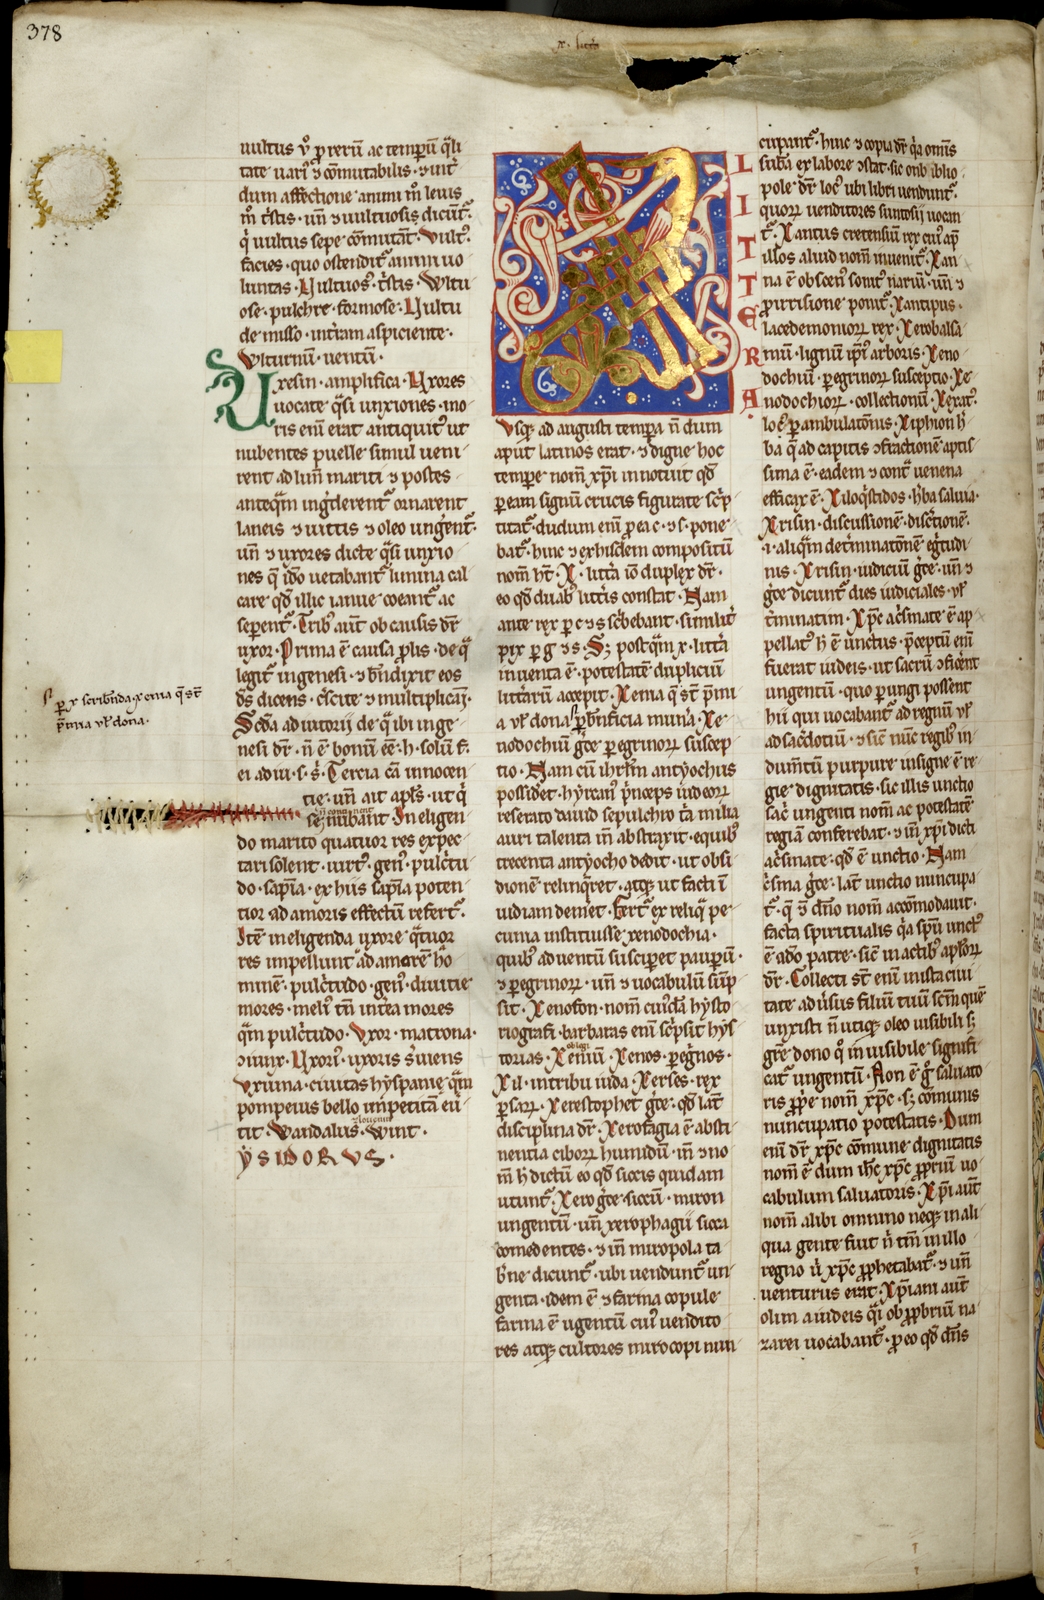 378
x. littera
uultus ṽ ꝑ rerū ac temporū q̄li
tate uari᷒ ⁊ cōmutabilis · ⁊ uit̄
dum affectione animi m̊ leuis
m̊ t̄stis · un̄ ⁊ uultuosis dicūt᷑
q̄ uultus sepe cōmutāt · Vult᷒
facies · quo ostendit᷑ animi uo
luntas · Vultuos᷒ t̄stis · Wltu
ose · pulchre · formose · Vultu
de misso · int̄iam aspiciente ·
Wlturnū · uentū ·
Uxesin · amplifica · Vxores
uocate q̄si unxiones · mo
ris eni erat antiquit᷒ ut
nubentes puelle simul ueni
rent ad lim̄ mariti ⁊ postes
anteq̄m ing̑derent᷑ ornarent
laneis ⁊ uittis ⁊ oleo unǵent᷑
un̄ ⁊ uxores dicte q̄si unxio
nes q̄ ido uetabant᷑ limina cal
care qđ illic ianue coeant᷑ ac
seꝑent᷑ · Trib᷒ aūt ob causis dr̄
uxor · Prima ē causa ꝓlis · de q̄
legit᷑ ingenesi · ⁊ bn̄dixit eos
ds̄ dicens · c̄scite ⁊ multiplicam̄i
Scđa adiutorij de q̄ ibi inge
nesi dr̄ · n̄ ē bonū eē · h · solū f̄
ei adiu · s · s̄ · Tercia cā innocen
tie · un̄ ait apl̄s · ut q̄
se n̄ 9tinent
nubant In eligen
do marito quatuor res expec
tari solent · uirt᷒ · gen᷒ · pulc̄tu
do · sapīa · ex hiis sapīa poten
tior ad amoris effectū refert᷑
Itē in eligenda uxore q̄tuor
res impellunt ad amorē ho
minē · pulc̄tudo · gen᷒ · diuitie
mores · meli᷒ tn̄ int̄ea mores
q̄m pulc̄tudo · Vxor · matrona ·
ↄiunx · Vxori᷒ · uxoris s̄uiens
Vxiuna · ciuitas hyspanie q̄m
pompeius bello impetitā eū
tit · Wandalus · Wint ·
YSIDORVS ·
ꝑ x scribn̄da · xenia q̄ st̄
p̄mia ul̄ dona ·
LITTERA
Vsq᷒ ad augusti tempa n̄ dum
aput latinos erat · ⁊ digne hoc
tempe nom̄ xp̄i innotuit qđ
ꝑ eam signū crucis figurate sc̄p
titat᷑ · dudum enī ꝓ ea c · ⁊ s · pone
bat᷑ · hinc ⁊ ex hisdem compositū
nom̄ ht̄ · X · litt̄a io duplex dr̄ ·
eo qđ duab᷒ litt̄is constat · Nam
ante rex ꝑ c ⁊ s sc̄bebant · similit̄
pix ꝑ g ⁊ s · Sꝫ postq̄m x · litt̄a
inuenta ē · potestatē duplicium
litt̄arū accepit · Xenia q̄ st̄ p̄mi
a ul̄ dona ꝑ bn̄ficia mun̄a · Xe
nodochiū · gc̄e ꝑegrinoꝝ suscep
tio · Nam cū ihrlm̄ antyochus
possidet · hyrcan᷒ p̄nceps iudeoꝝ
reserato dauid sepulchro t̄a milia
auri talenta in̄ abstraxit · e quib᷒
trecenta antyocho dedit · ut obsi
dionē relinq̄ret · atq᷒ ut facti ī
uidiam demet · Fert᷑ ex reliq̄ pe
cunia instituisse xenodochia ·
quib᷒ aduentū susciꝑet pauꝑum ·
⁊ ꝑegrinoꝝ · un̄ ⁊ uocabulū sūp
sit · Xenofon · nom̄ cui᷒dā hysto
riografi · barbaras eni sc̄psit hys
torias · Xeniū · Xenos · ꝑeg̑nos ·
Xil · in tribu iuda · Xerses · rex
ꝑsaꝝ · Xerestophet gc̄e · qđ lat̄
disciplina dr̄ · Xerofagia ē absti
nentia ciboꝝ humidū · in̄ ⁊ no
m̄ h̄ dictū eo qđ siccis quidam
utunt᷑ · Xero gc̄e siccū · miron
ungentū · un̄ xerophagii sicca
comedentes · ⁊ in̄ miropola ta
b̄ne dicunt᷑ · ubi uendunt᷑ un
genta · idem ē ⁊ farma copule
farma ē ugentū cui᷒ uendito
res atq᷒ cultores mirocopi nun
cupant᷑ · hinc ⁊ copia dr̄ q̄a omīs
suba ex labore ↄstat · sic onb iblio
pole dr̄ loc᷒ ubi libri uendunt᷑ ·
quoꝝ uenditores
t᷑ · Xantus cretensiū rex cui᷒ ap̄
illos aliud nom̄ inuenit᷑ · Xan
na ē obscen᷒ sonit᷒ nariū · un̄ ⁊
ꝓ irrisione ponit᷑ · Xantipus ·
lacedemonioꝝ rex · Xerobalsa
mū · lignū ip̄i᷒ arboris · Xeno
dochiū · ꝑegrinoꝝ susceptio · Xe
nodochioꝝ · collectionū · Xexat᷒
loc᷒ ꝑambulatōnis · Xiphion h̄
ba q̄ ad capitis ↄfractionē aptis
sima ē · eadem ⁊ cont̄ uenena
efficax ē · Xiloq̄stidos · h̄ba saluia ·
Xrisin · discussionē · disc̄tionē ·
·i· aliq̄m det̄minatōnē eg̑tudi
nis · Xrisin · iudiciū gc̄e · un̄ ⁊
gc̄e dicunt᷑ dies iudiciales · ul̄
t̄minatim · Xp̄c a c̄smate ē ap
pellat᷒ h̄ ē unctus · p̄ceptū eni
fuerat iudeis · ut sacrū ↄficent
ungentū · quo ꝑungi possent
hii qui uocabant᷑ ad regnū ul̄
ad sac̄dotiū · ⁊ sic̄ nūc regib᷒ in
dum̄tū purpure insigne ē re
gie dignitatis · sic illis unctio
sac̄i ungenti nom̄ ac potestatē
regiā conferebat · ⁊ in̄ xp̄i dicti
a c̄smate · qđ ē unctio · Nam
c̄sma gc̄e · lat̄ unctio nuncupa
t᷑ · q̄ ⁊ dn̄o nom̄ accōmodauit ·
facta spiritualis q̄a spū unct᷒
ē a dō patre · sic̄ in actib᷒ apl̄oꝝ
dr̄ · Collecti st̄ eni in ista ciui
tate aduersus filiū tuū scm̄ quē
unxisti n̄ utiq᷒ oleo uisibili sꝫ
gr̄e dono q̊ inuisibile signifi
cat᷑ ungentū · Non ē g̊ saluato
ris ꝓp̄e nom̄ xp̄c · sꝫ cōmunis
nuncupatio potestatis · Dum
eni dr̄ xp̄c cōmune dignitatis
nom̄ ē · dum ih̄c xp̄c ꝓprium uo
cabulum saluatoris · Xp̄i aūt
nom̄ alibi omnino neq᷒ in ali
qua gente fuit n̄ tm̄ in illo
regno u xp̄c ꝓphetabat᷑ · ⁊ un̄
uenturus erat · Xp̄iani aūt
olim a iudeis q̄si ob ꝓbriū na
zarei uocabant᷑ · ꝓ eo qđ dn̄s